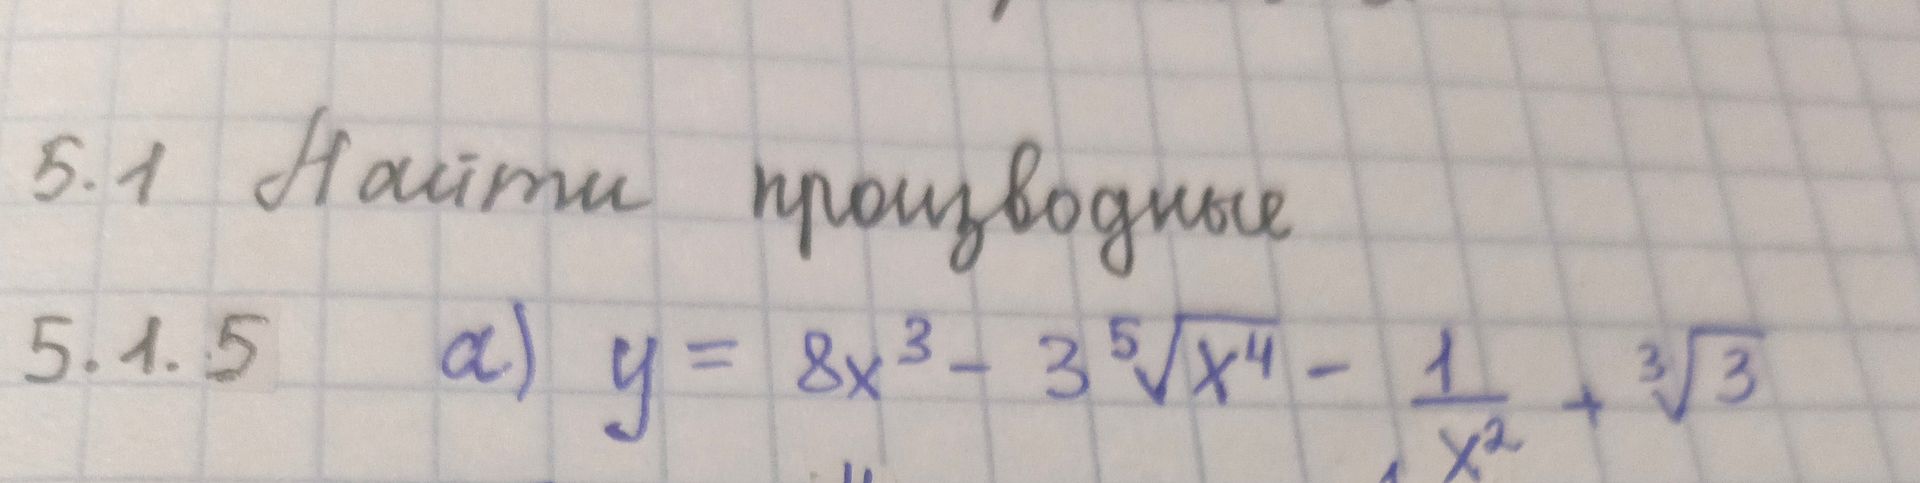 5.1 Найти производные
5.1.5 а) y = 8x³ - 3 ⁵√x⁴ - 1/x² + ³√3